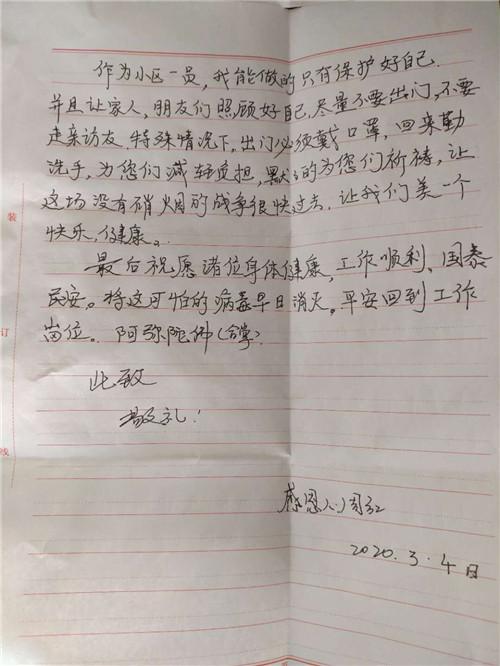 作为小区一员，我能做的只有保护好自己.
并且让家人，朋友们照顾好自己.尽量不要出门，不要
走亲访友.特殊情况下，出门必须戴口罩，回来勤
洗手，为您们减轻负担，默默的为您们祈祷，让
这场没有硝烟的战争很快过去.让我们美一个
快乐，健康。
最后祝愿诸位身体健康，工作顺利、国泰
民安。将这可怕的病毒早日消灭。平安回到工作
岗位。阿弥陀佛(合掌)
此致
敬礼!
感恩人:周红
2020.3.4日
装
订
线